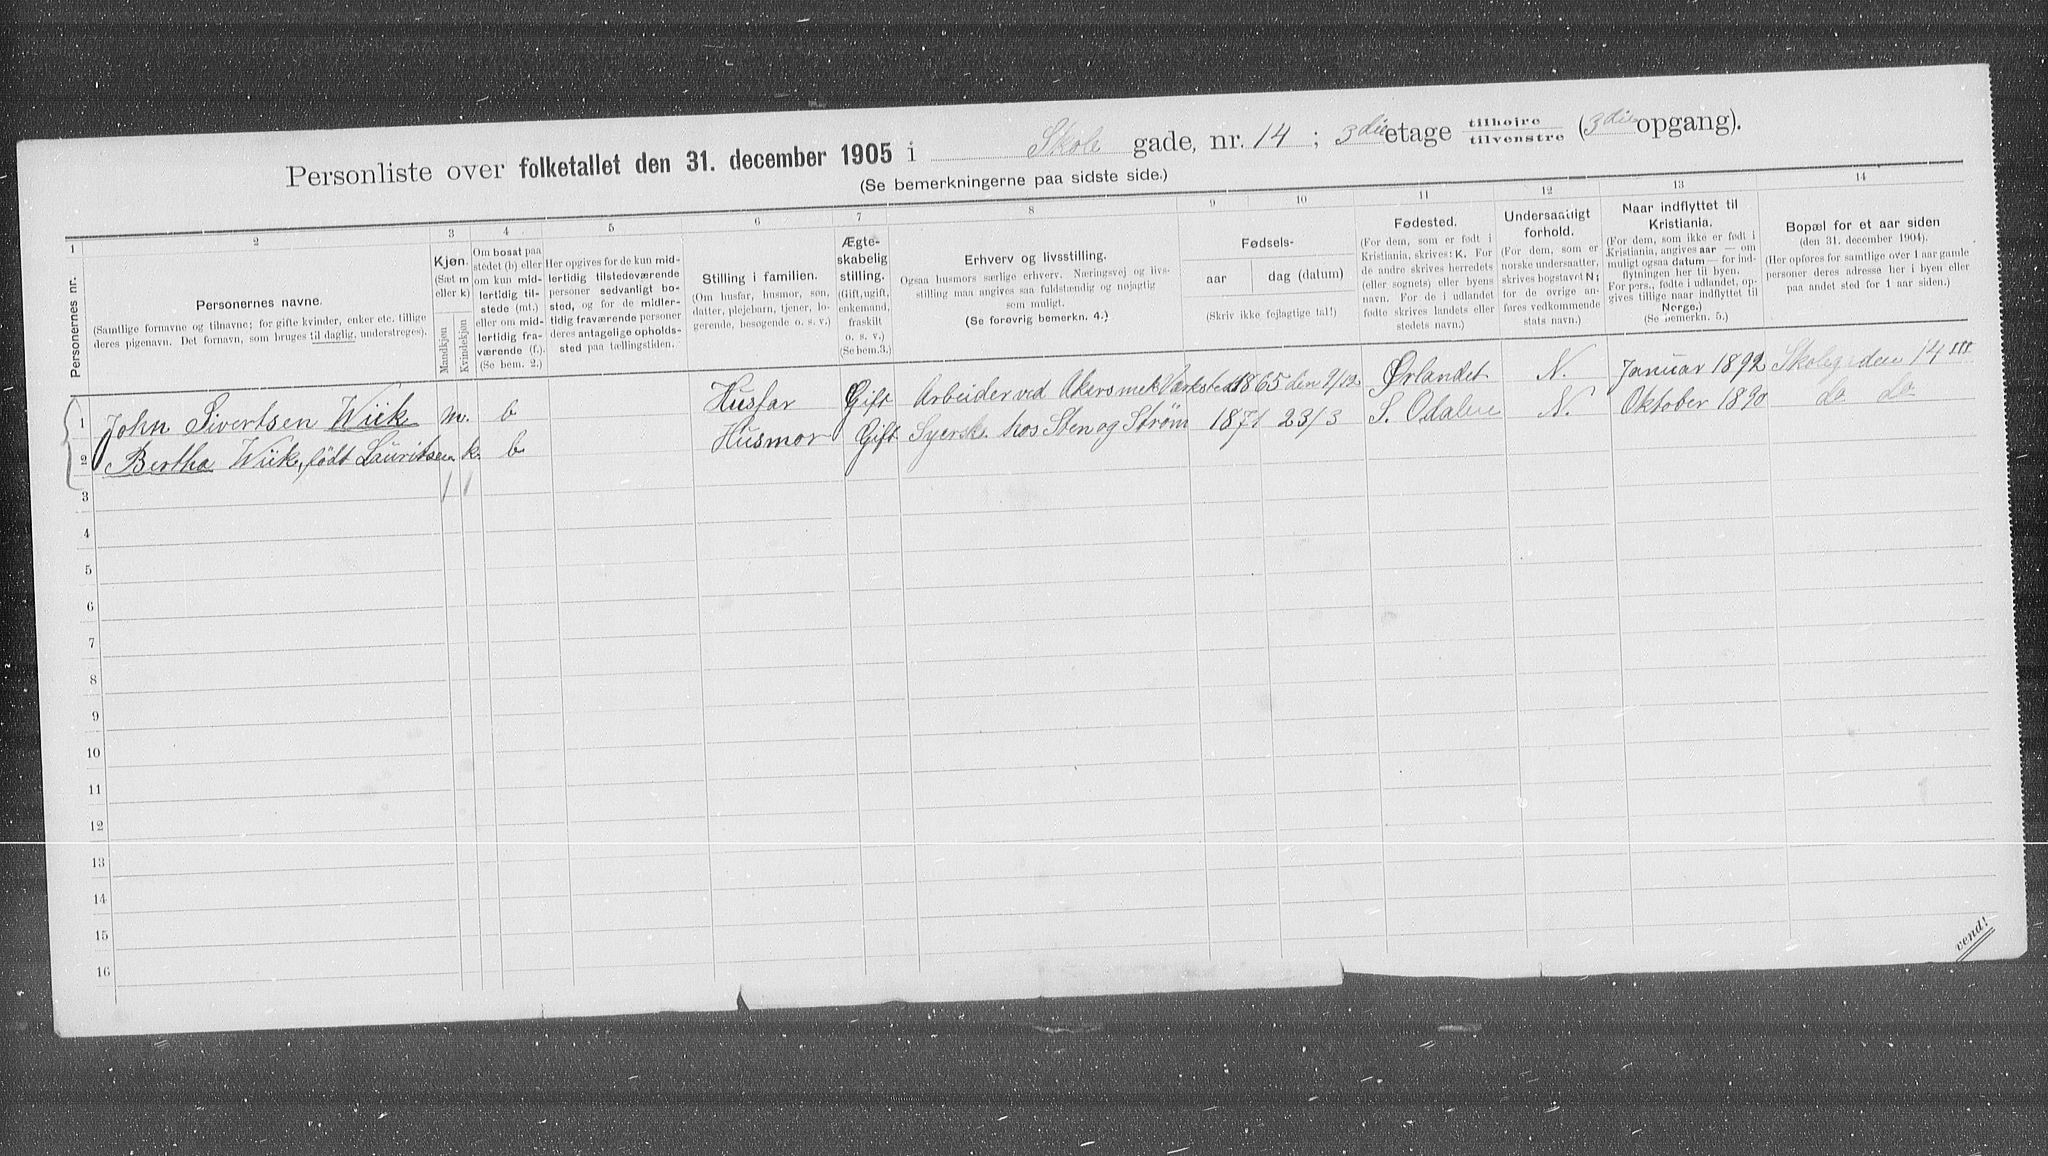 Personliste over folketallet den 31. december 1905 i Skole gade, nr. 14 ; 3die etage tilhøjre tilvenstre (3die opgang).
(Se bemerkningerne paa sidste side.)
1 2 3 4 5 6 7 8 9 10 11 12 13 14
Personernes nr.
Personernes navne.
(Samtlige fornavne og tilnavne; for gifte kvinder, enker etc. tillige
deres pigenavn. Det fornavn, som bruges til daglig, understreges).
Kjøn.
(Sæt m
eller k)
Mandkjøn
Kvindekjøn
Om bosat paa
stedet (b) eller
om kun mid-
lertidig til-
stede (mt.)
eller om mid-
lertidig fra-
værende (f.).
(Se bem. 2.)
Her opgives for de kun mid-
lertidig tilstedeværende
personer sedvanligt bo-
sted, og for de midler-
tidig fraværende personer
deres antagelige opholds-
sted paa tællingstiden.
Stilling i familien.
(Om husfar, husmor, søn,
datter, plejebarn, tjener, lo-
gerende, besøgende o. s. v.)
Ægte-
skabelig
stilling.
(Gift, ugift,
enkemand,
fraskilt
o. s. v.)
(Se bem. 3.)
Erhverv og livsstilling.
Ogsaa husmors særlige erhverv. Næringsvej og livs-
stilling maa angives saa fuldstændig og nøjagtig
som muligt.
(Se forøvrig bemerkn. 4.)
Fødsels-
aar
dag (datum)
(Skriv ikke fejlagtige tal!)
Fødested.
(For dem, som er født i
Kristiania, skrives: K. For
de andre skrives herredets
(eller sognets) eller byens
navn. For de i udlandet
fødte skrives landets eller
stedets navn.)
Undersaatligt
forhold.
(For dem, som er
norske undersaatter,
skrives bogstavet N;
for de øvrige an-
føres vedkommende
stats navn.)
Naar indflyttet til
Kristiania.
(For dem, som ikke er født i
Kristiania, angives aar — om
muligt ogsaa datum — for ind-
flytningen her til byen.
For pers., fødte i udlandet, op-
gives tillige naar indflyttet til
Norge.)
(Se bemerkn. 5.)
Bopæl for et aar siden
(den 31. december 1904).
(Her opføres for samtlige over 1 aar gamle
personer deres adresse her i byen eller
paa andet sted for 1 aar siden.)
1 John Sivertsen Wiik m. b Husfar Gift Arbeider ved Akers mek Værksted 1865 den 9/12 Ørlandet N. Januar 1892 Skolegaden 14 III
2 Bertha Wiik, født Lauritsen k. b Husmor Gift Syerske hos Sten og Strøm 1871 23/3 S. Odalen N. Oktober 1890 do do
3 1 1
4
5
6
7
8
9
10
11
12
13
14
15
16
vend!